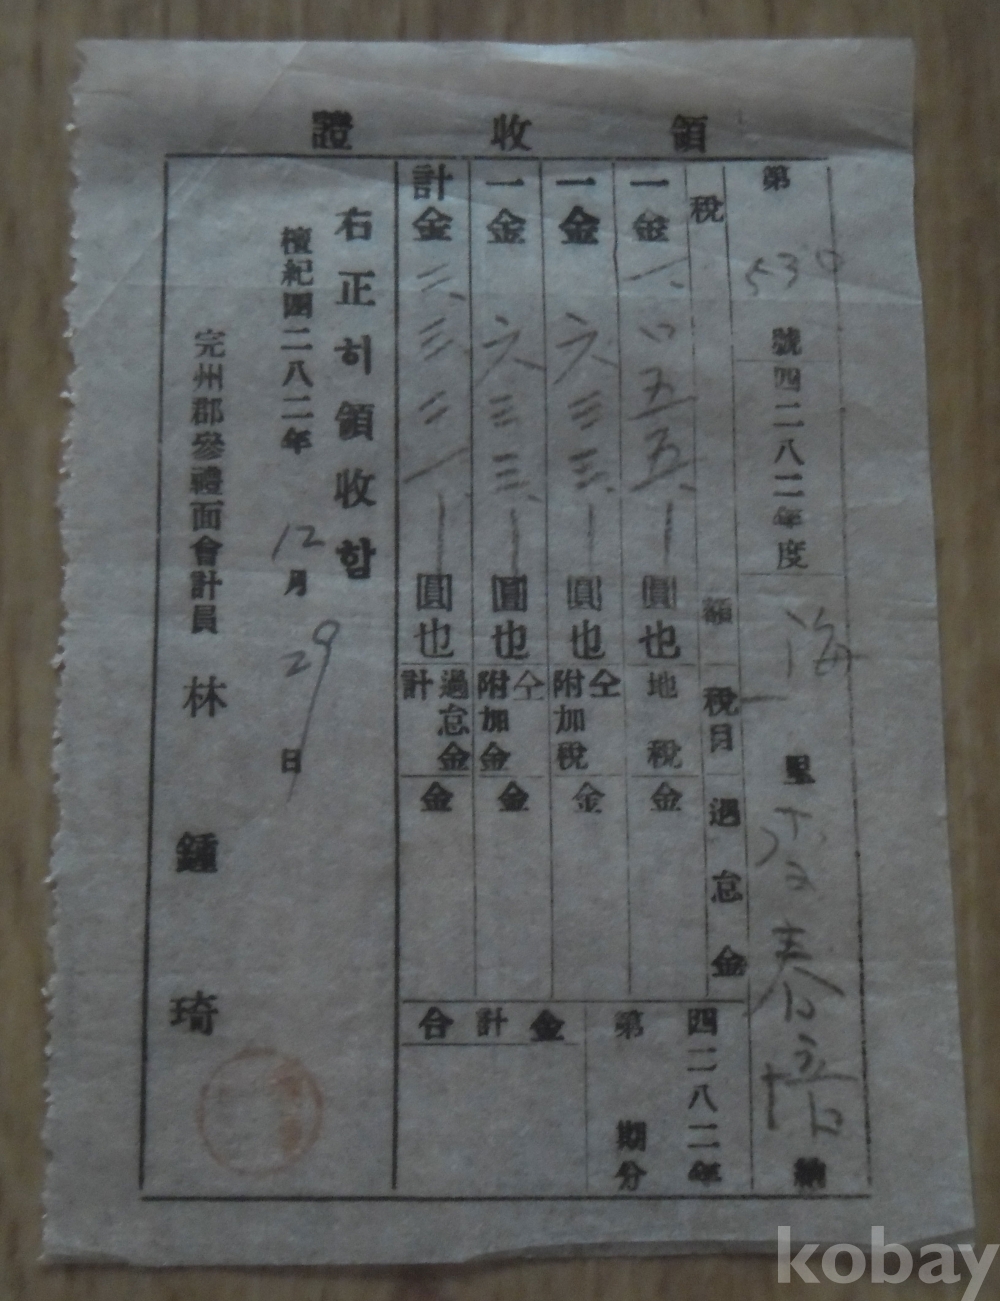 領收證
第 530 號 四二八二年度 海 里 春 培 納
稅額 稅目 過怠金 四二八二年
一金 一、〇五五、一 圓也 地稅 金 第 期分
一金 六三三、一 圓也 仝附加稅 金
一金 六三三、一 圓也 仝附加金 金 合計金
計金 二、三二一、一 圓也 過怠金計 金
右正히領收함
檀紀四二八二年 12月 29日
完州郡參禮面會計員 林鍾琦
kobay